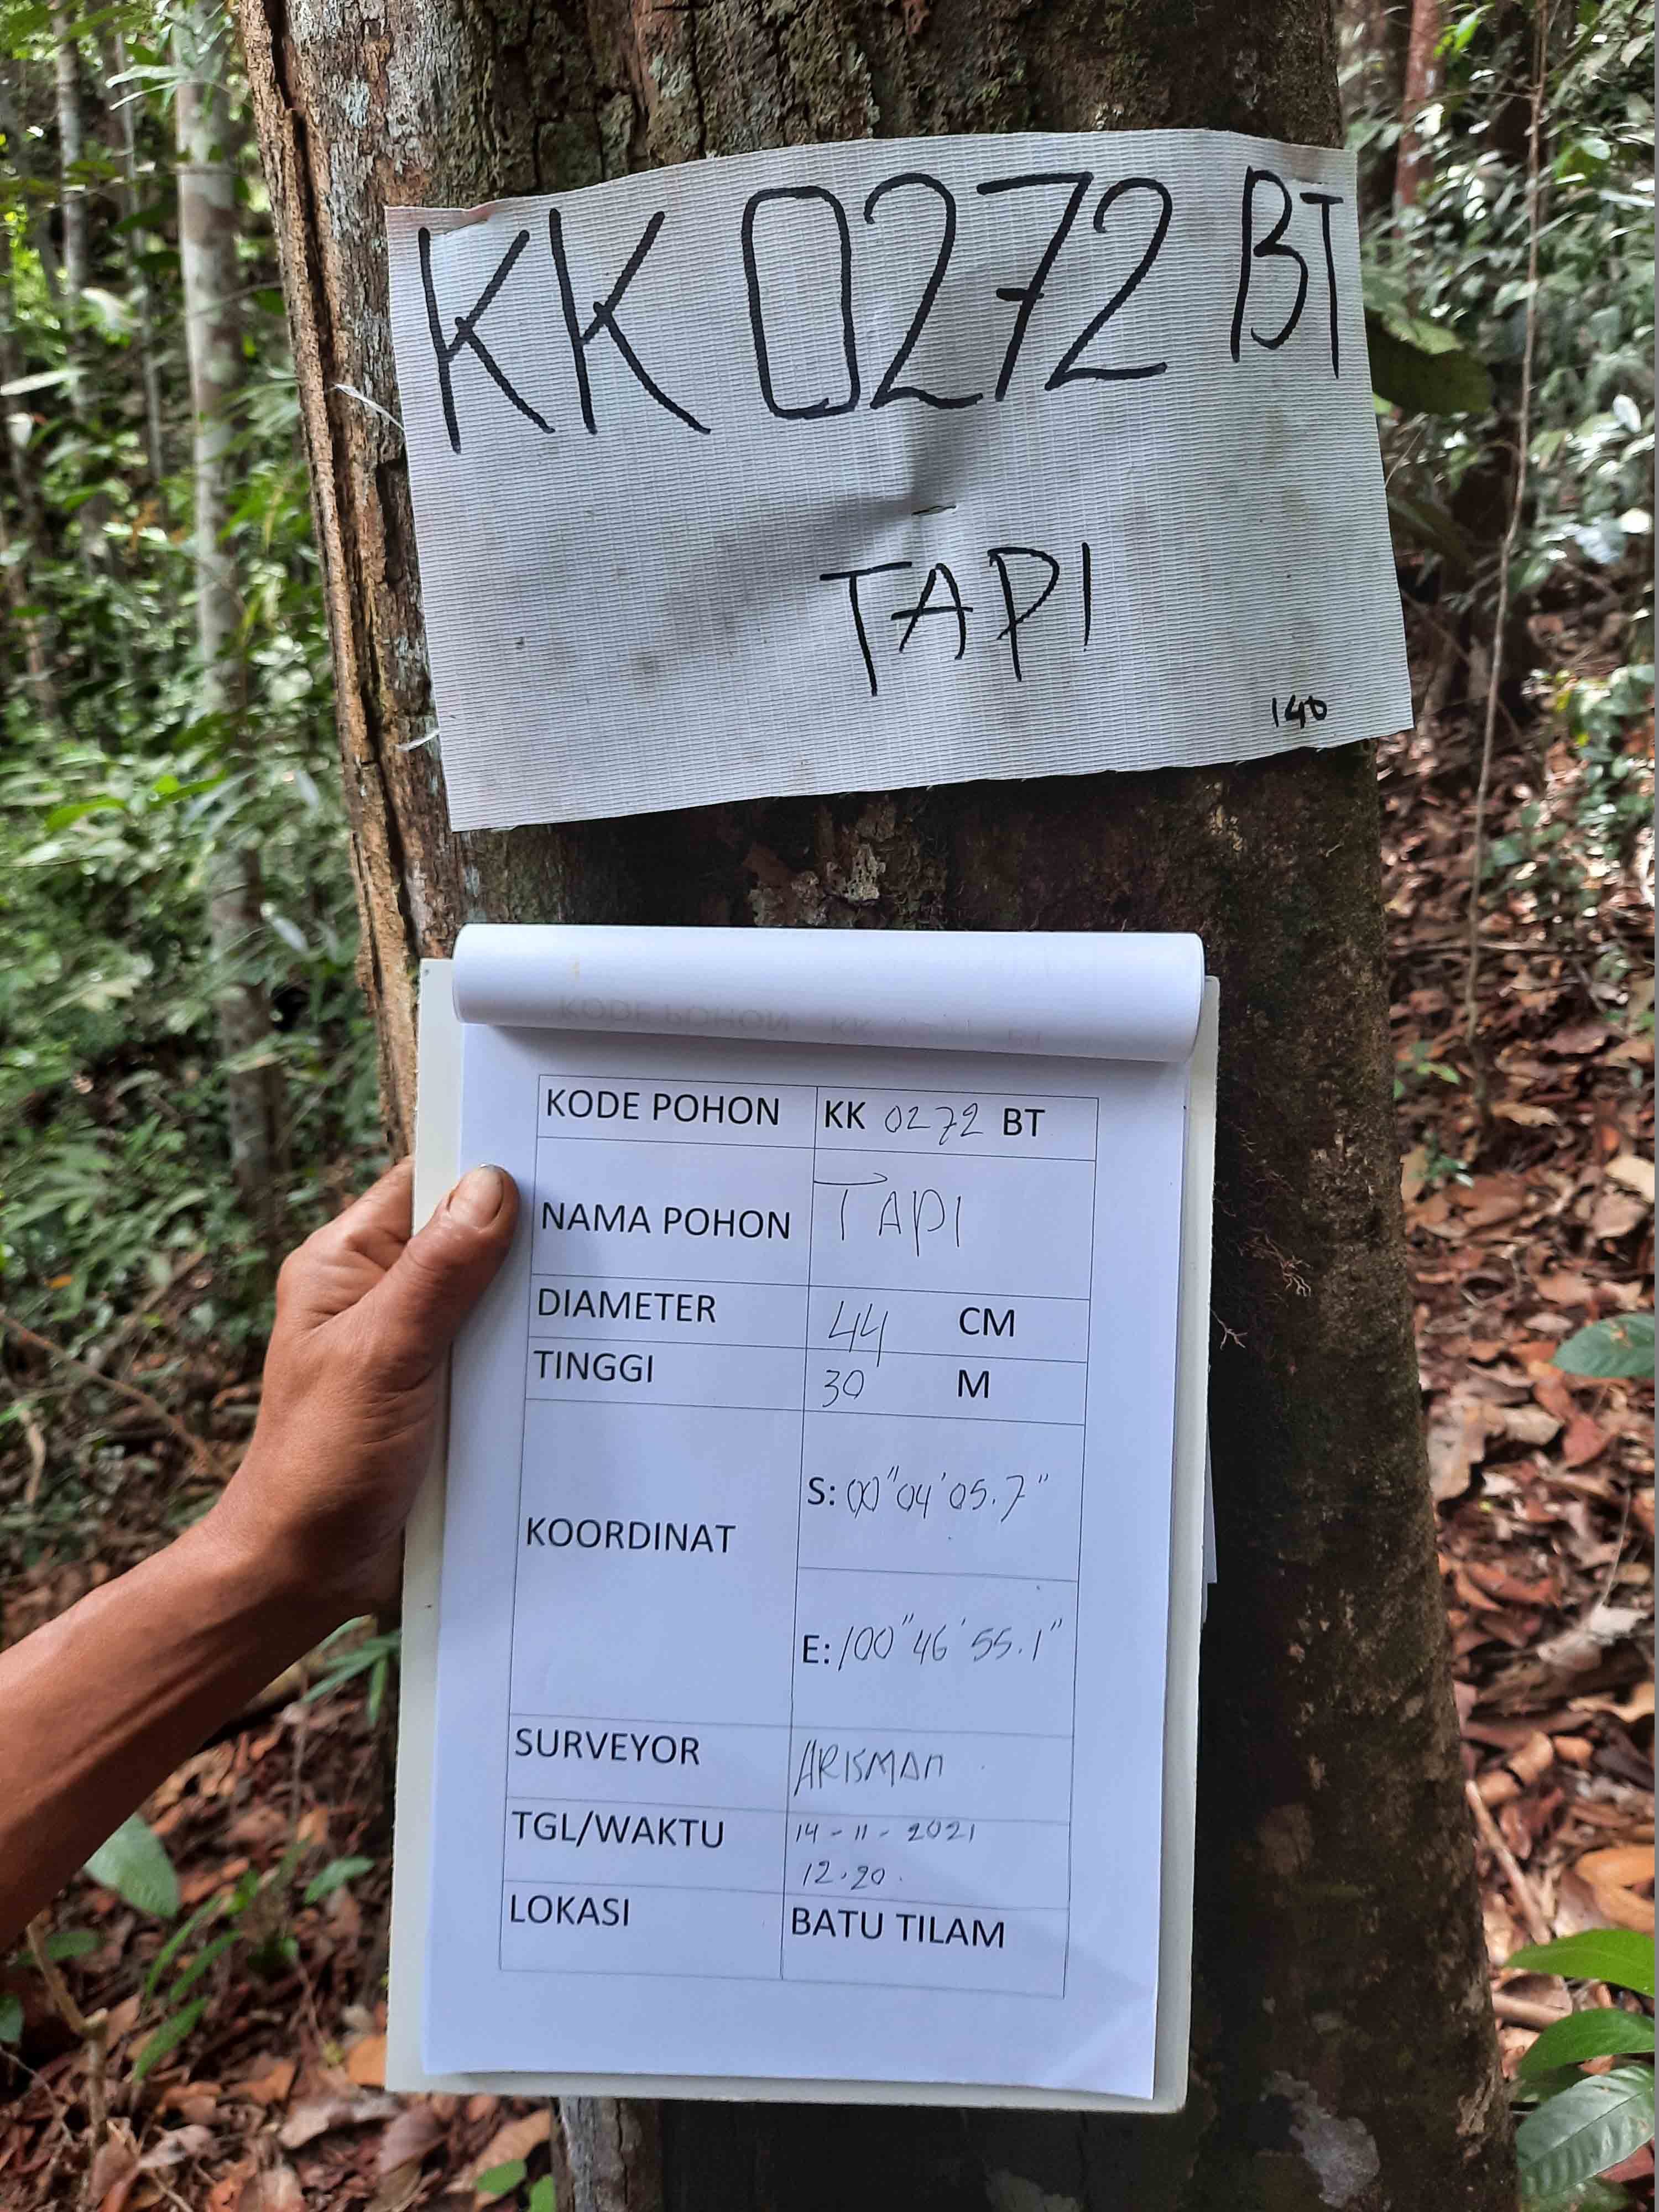 KK 0272 BT
TAPI
140
KODE POHON KK 0272 BT
NAMA POHON TAPI
DIAMETER 44 CM
TINGGI 30 M
KOORDINAT
S: 00"04'05.7"
E: 100"46'55.1"
SURVEYOR ARISMAN
TGL/WAKTU 14-11-2021
12.20.
LOKASI BATU TILAM